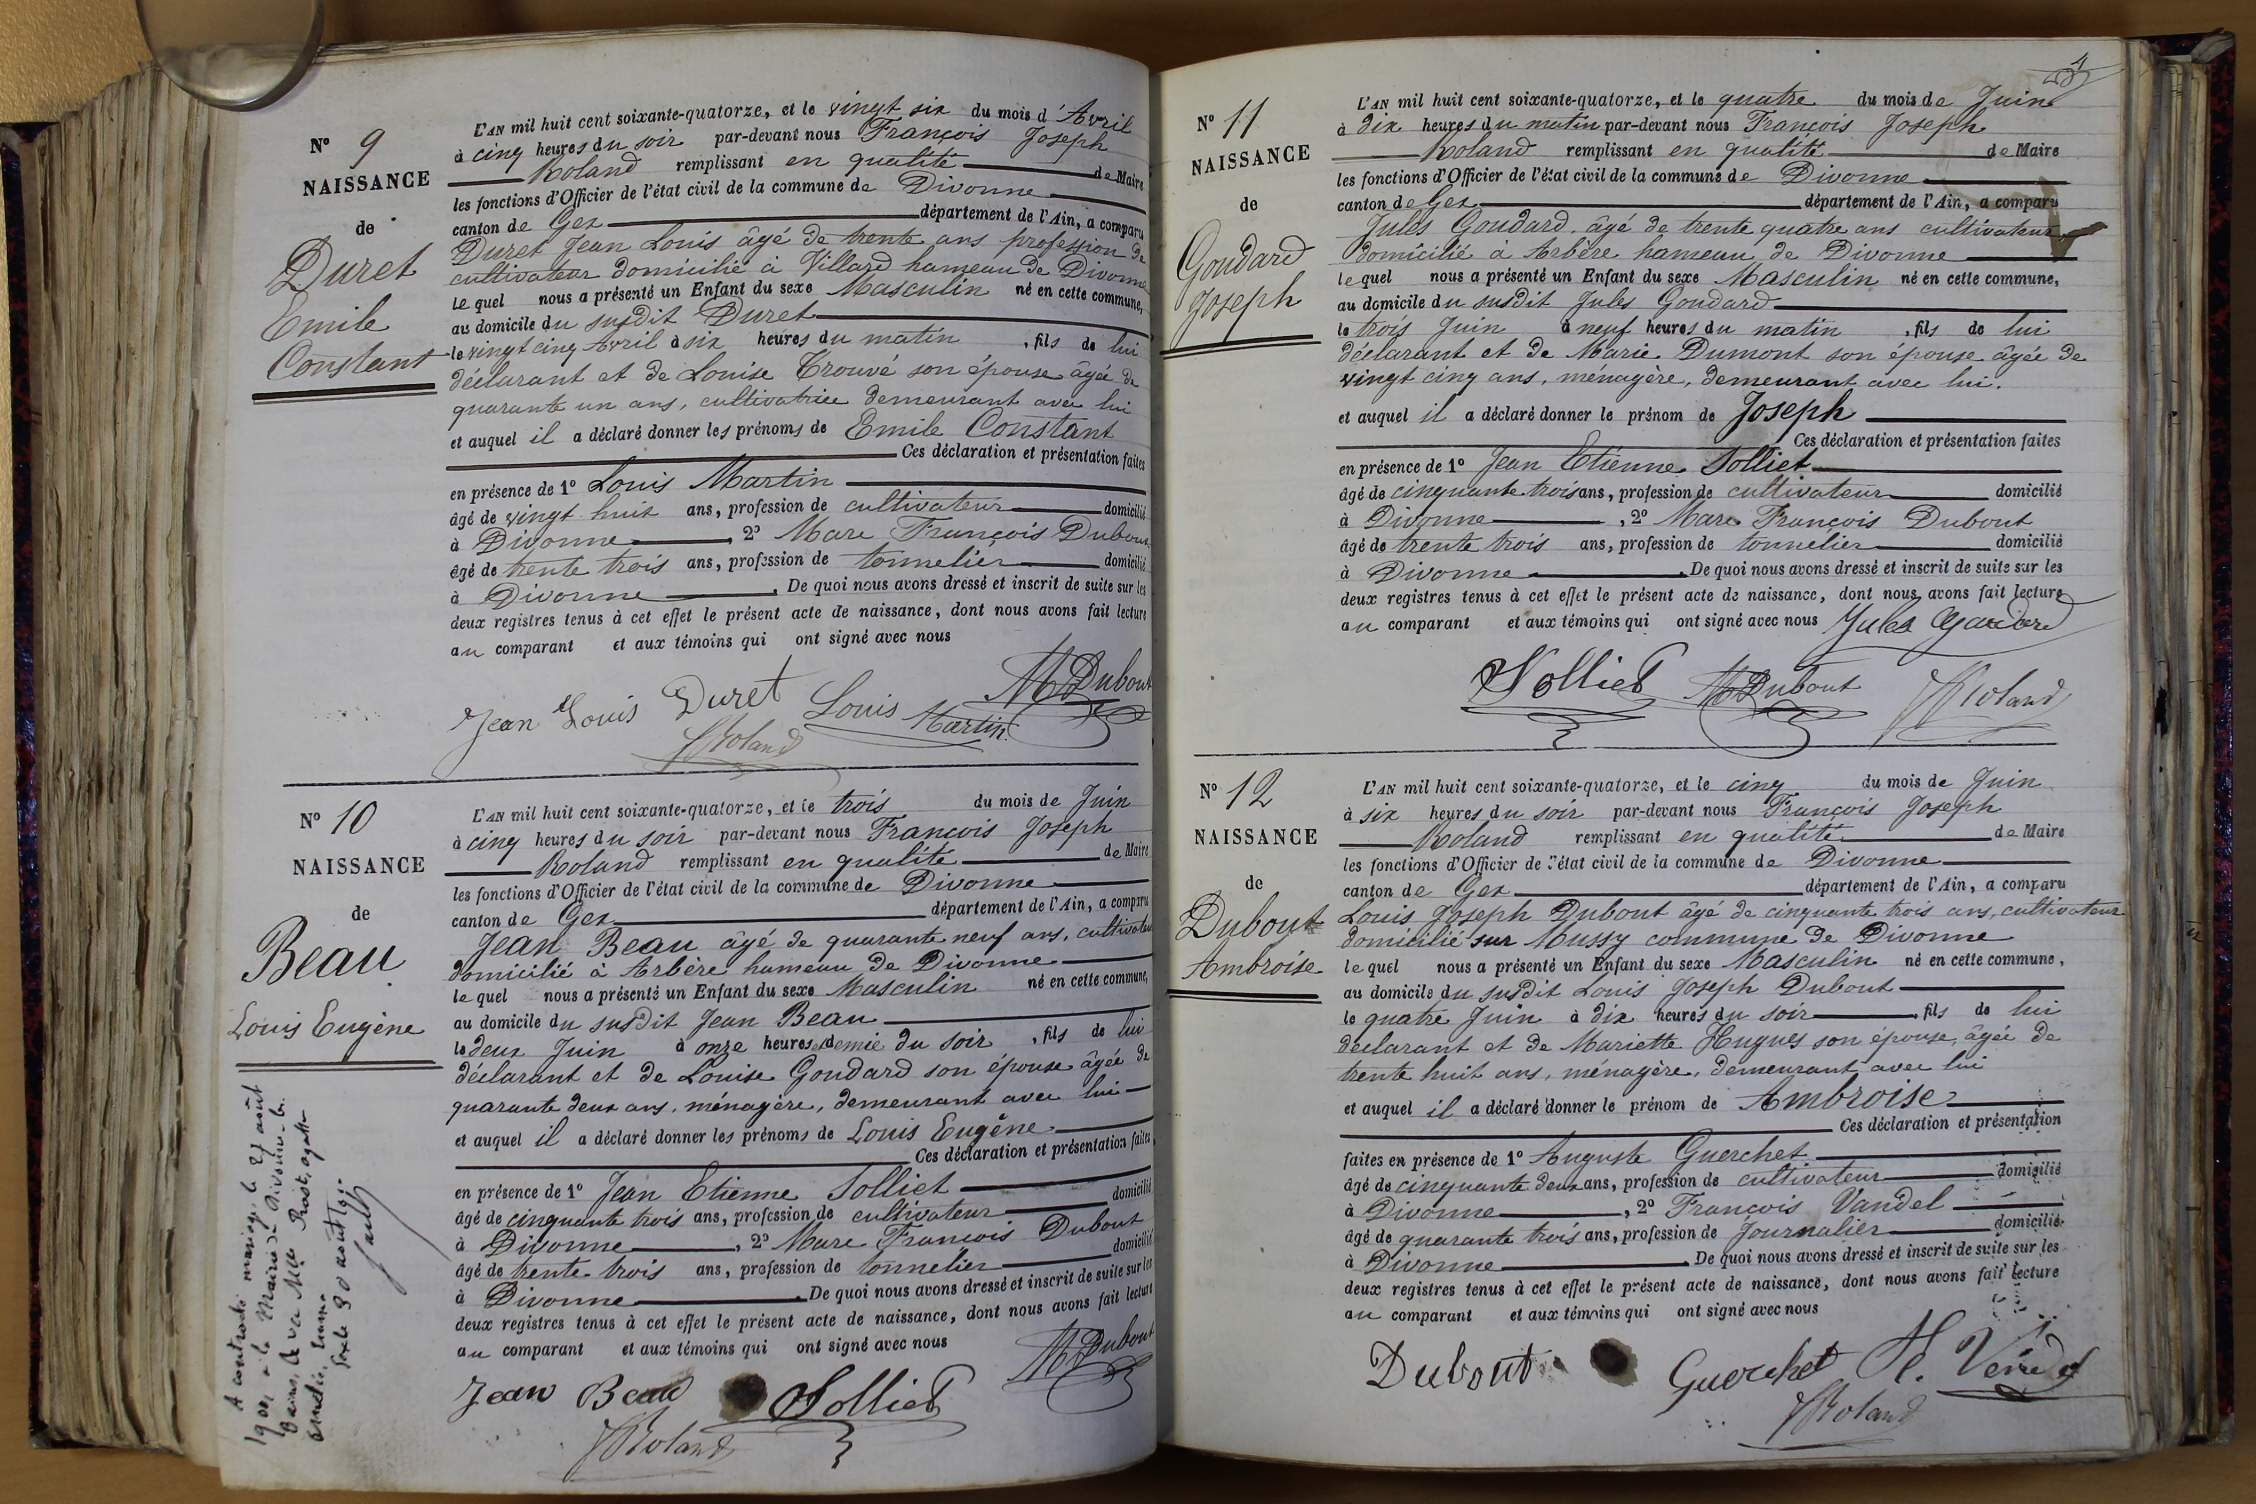 N° 9
NAISSANCE
de
Duret
Emile
Constant
L'AN mil huit cent soixante-quatorze, et le vingt six du mois d'Avril
à cinq heures du soir par-devant nous François Joseph
Roland remplissant en qualité de Maire
les fonctions d'Officier de l'état civil de la commune de Divonne
canton de Gex département de l'Ain, a comparu
Duret Jean Louis âgé de trente ans profession de
cultivateur domicilié à Villard hameau de Divonne
lequel nous a présenté un Enfant du sexe Masculin né en cette commune,
au domicile du susdit Duret
le vingt cinq Avril à six heures du matin, fils de lui
déclarant et de Louise Trouvé son épouse âgée de
quarante un ans, cultivatrice demeurant avec lui
et auquel il a déclaré donner les prénoms de Emile Constant
Ces déclaration et présentation faites
en présence de 1° Louis Martin
âgé de vingt huit ans, profession de cultivateur domicilié
à Divonne, 2° Marc François Dubout
âgé de trente trois ans, profession de tonnelier domicilié
à Divonne. De quoi nous avons dressé et inscrit de suite sur les
deux registres tenus à cet effet le présent acte de naissance, dont nous avons fait lecture
au comparant et aux témoins qui ont signé avec nous
Jean Louis Duret Louis Martin MDubout
Roland
N° 10
NAISSANCE
de
Beau
Louis Eugène
A contracté mariage le 27 août
à la Mairie de Divonne-les-
Bains,
30 août
L'AN mil huit cent soixante-quatorze, et le trois du mois de Juin
à cinq heures du soir par-devant nous François Joseph
Roland remplissant en qualité de Maire
les fonctions d'Officier de l'état civil de la commune de Divonne
canton de Gex département de l'Ain, a comparu
Jean Beau âgé de quarante neuf ans, cultivateur
domicilié à Arbère hameau de Divonne
lequel nous a présenté un Enfant du sexe Masculin né en cette commune,
au domicile du susdit Jean Beau
le deux Juin à onze heures et demie du soir, fils de lui
déclarant et de Louise Goudard son épouse âgée de
quarante deux ans, ménagère, demeurant avec lui
et auquel il a déclaré donner les prénoms de Louis Eugène
Ces déclaration et présentation faites
en présence de 1° Jean Etienne Solliet
âgé de cinquante trois ans, profession de cultivateur domicilié
à Divonne, 2° Marc François Dubout
âgé de trente trois ans, profession de tonnelier domicilié
à Divonne. De quoi nous avons dressé et inscrit de suite sur les
deux registres tenus à cet effet le présent acte de naissance, dont nous avons fait lecture
au comparant et aux témoins qui ont signé avec nous
MDubout
Jean Beau Solliet
Roland
N° 11
NAISSANCE
de
Goudard
Joseph
L'AN mil huit cent soixante-quatorze, et le quatre du mois de Juin
à dix heures du matin par-devant nous François Joseph
Roland remplissant en qualité de Maire
les fonctions d'Officier de l'état civil de la commune de Divonne
canton de Gex département de l'Ain, a comparu
Jules Goudard, âgé de trente quatre ans cultivateur
domicilié à Arbère hameau de Divonne
lequel nous a présenté un Enfant du sexe Masculin né en cette commune,
au domicile du susdit Jules Goudard
le trois Juin à neuf heures du matin, fils de lui
déclarant et de Marie Dumont son épouse âgée de
vingt cinq ans, ménagère, demeurant avec lui.
et auquel il a déclaré donner le prénom de Joseph
Ces déclaration et présentation faites
en présence de 1° Jean Etienne Solliet
âgé de cinquante trois ans, profession de cultivateur domicilié
à Divonne, 2° Marc François Dubout
âgé de trente trois ans, profession de tonnelier domicilié
à Divonne. De quoi nous avons dressé et inscrit de suite sur les
deux registres tenus à cet effet le présent acte de naissance, dont nous avons fait lecture
au comparant et aux témoins qui ont signé avec nous Jules Goudard
Solliet MDubout Roland
N° 12
NAISSANCE
de
Dubout
Ambroise
L'AN mil huit cent soixante-quatorze, et le cinq du mois de Juin
à six heures du soir par-devant nous François Joseph
Roland remplissant en qualité de Maire
les fonctions d'Officier de l'état civil de la commune de Divonne
canton de Gex département de l'Ain, a comparu
Louis Joseph Dubout âgé de cinquante trois ans, cultivateur
domicilié sur Mussy commune de Divonne
lequel nous a présenté un Enfant du sexe Masculin né en cette commune,
au domicile du susdit Louis Joseph Dubout
le quatre Juin à dix heures du soir, fils de lui
déclarant et de Mariette Hugues son épouse, âgée de
trente huit ans, ménagère, demeurant avec lui
et auquel il a déclaré donner le prénom de Ambroise
Ces déclaration et présentation
faites en présence de 1° Auguste Guerchet
âgé de cinquante deux ans, profession de cultivateur domicilié
à Divonne, 2° François Vandel
âgé de quarante trois ans, profession de Journalier domicilié
à Divonne. De quoi nous avons dressé et inscrit de suite sur les
deux registres tenus à cet effet le présent acte de naissance, dont nous avons fait lecture
au comparant et aux témoins qui ont signé avec nous
Dubout Guerchet
Roland